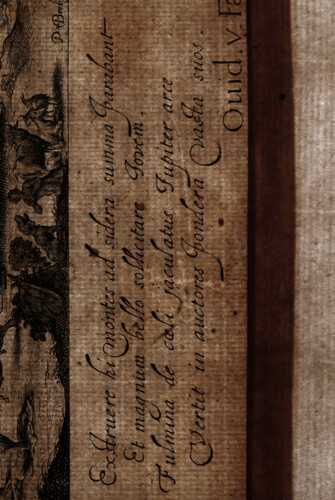 Exstruere hi montes ad sidera summa parabant
Et magnum bello sollicitare Iovem.
Fulmina de cœli jaculatus Iupiter arce
Vertit in auctores pondera vasta suos.
Ouid. v. Fa